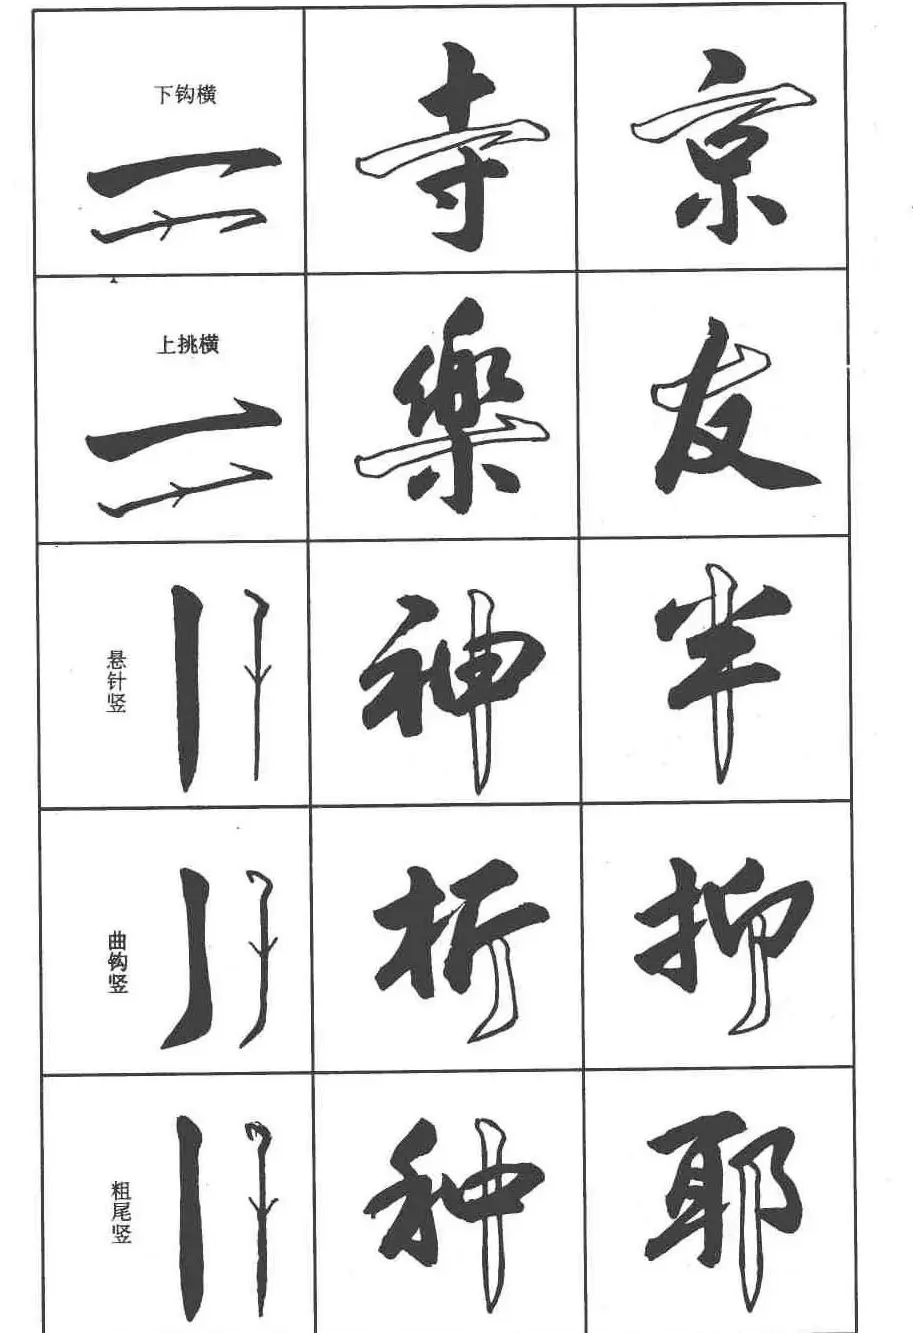 下钩横 寺 京
上挑横 樂 友
悬针竖 神 半
曲钩竖 析 抑
粗尾竖 种 耶